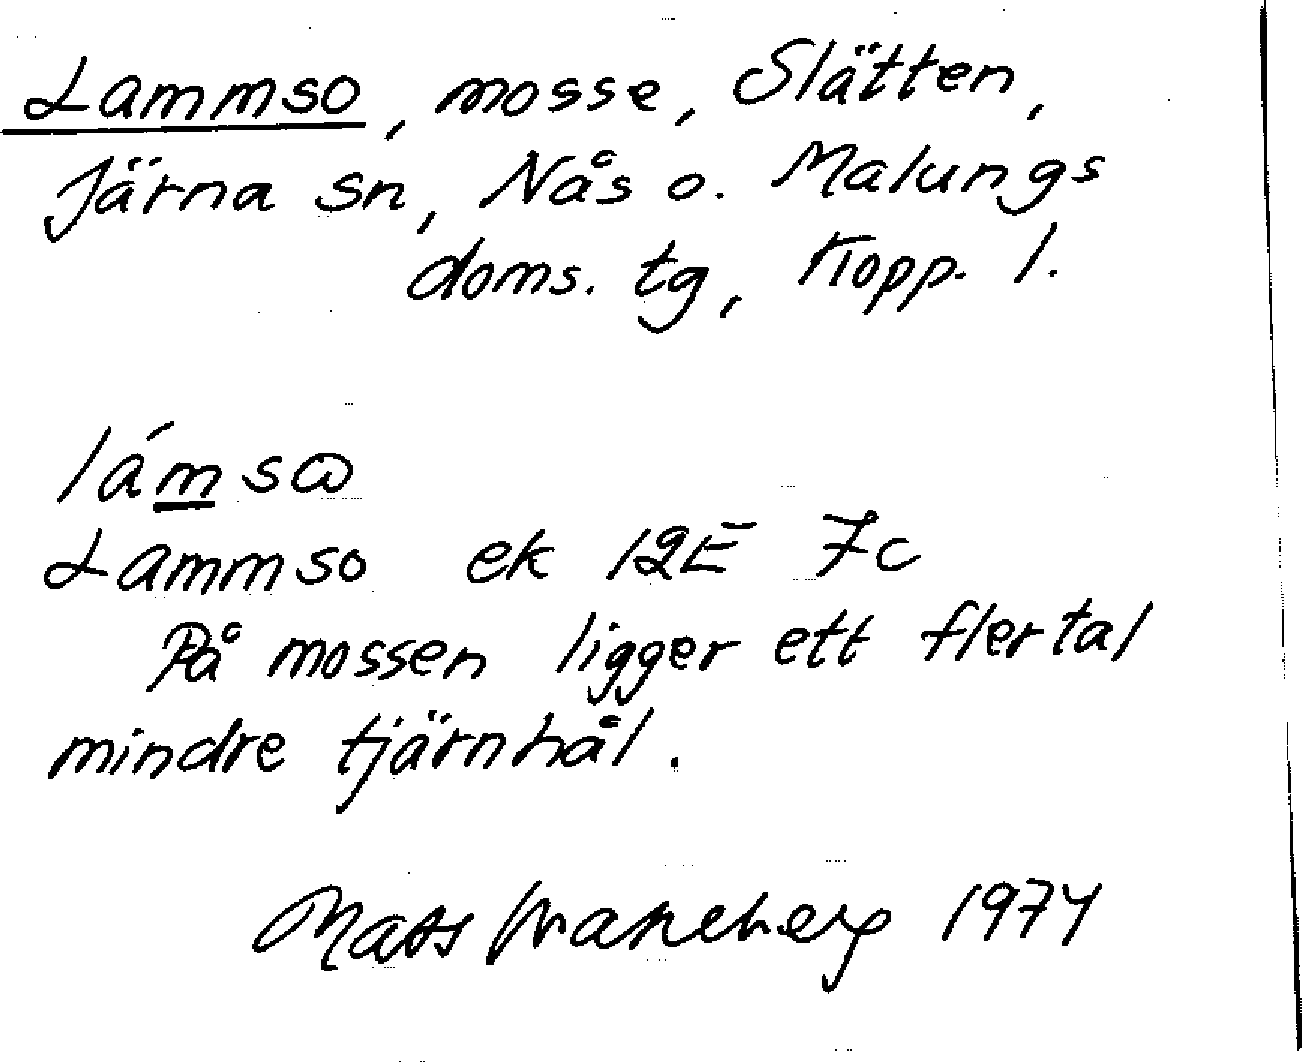 Lammso, mosse, Slätten,
Järna sn, Nås o. Malungs
doms. tg, Kopp. l.
lámsɷ
Lammso ek 12E 7c
På mossen ligger ett flertal
mindre tjärnhål.
Mats Wahlberg 1974